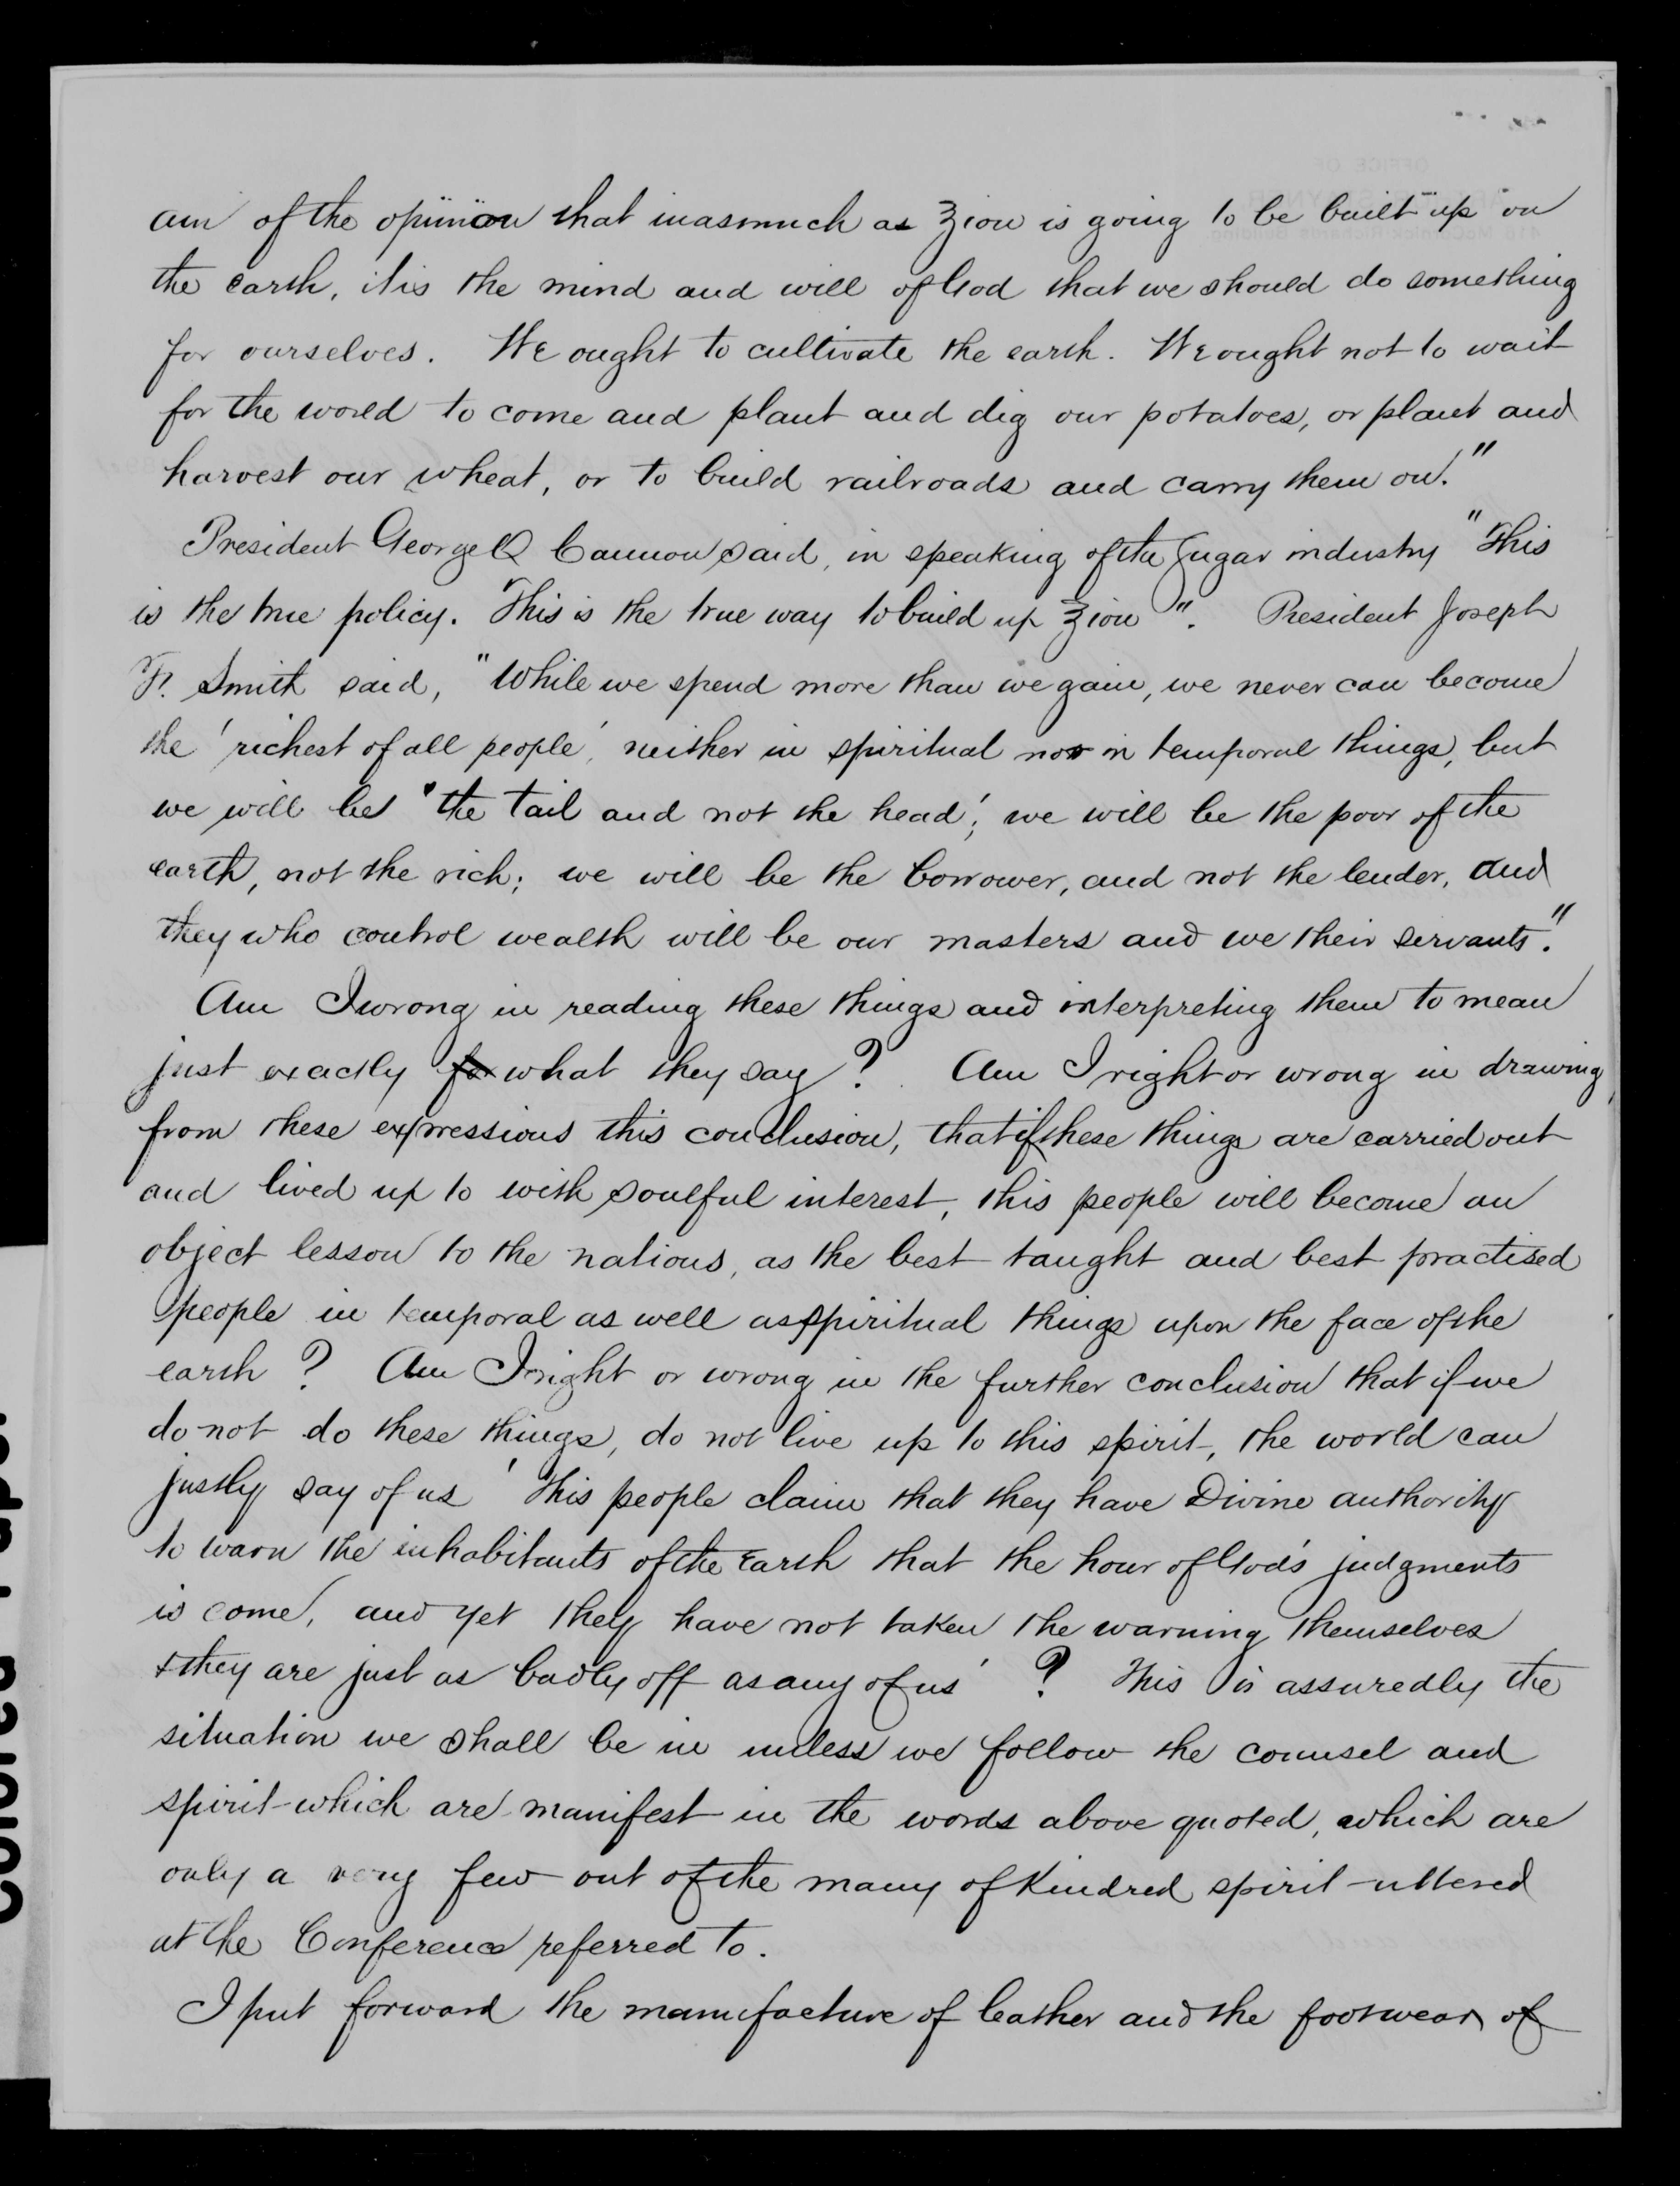 am of the opinion that inasmuch as Zion is going to be built up on
the earth, it is the mind and will of God that we should do something
for ourselves. We ought to cultivate the earth. We ought not to wait
for the world to come and plant and dig our potatoes, or plant and
harvest our wheat, or to build railroads and carry them on."
President George Q Cannon said, in speaking of the Sugar industry "This
is the true policy. This is the true way to build up Zion". President Joseph
F. Smith said, "While we spend more than we gain, we never can become
the 'richest of all people', neither in spiritual nor in temporal things, but
we will be 'the tail and not the head'; we will be the poor of the
earth, not the rich; we will be the borrower, and not the lender, and
they who control wealth will be our masters and we their servants."
Am I wrong in reading these things and interpreting them to mean
just exactly for what they say? Am I right or wrong in drawing
from these expressions this conclusion, that if these things are carried out
and lived up to with soulful interest, this people will become an
object lesson to the nations, as the best taught and best practised
people in temporal as well as spiritual things upon the face of the
earth? Am I right or wrong in the further conclusion that if we
do not do these things, do not live up to this spirit, the world can
justly say of us 'This people claim that they have Divine authority
to warn the inhabitants of the Earth that the hour of God's judgments
is come, and yet they have not taken the warning themselves
& they are just as badly off as any of us'? This is assuredly the
situation we shall be in unless we follow the counsel and
spirit which are manifest in the words above quoted, which are
only a very few out of the many of Kindred spirit uttered
at the Conference referred to.
I put forward the manufacture of leather and the footwear of